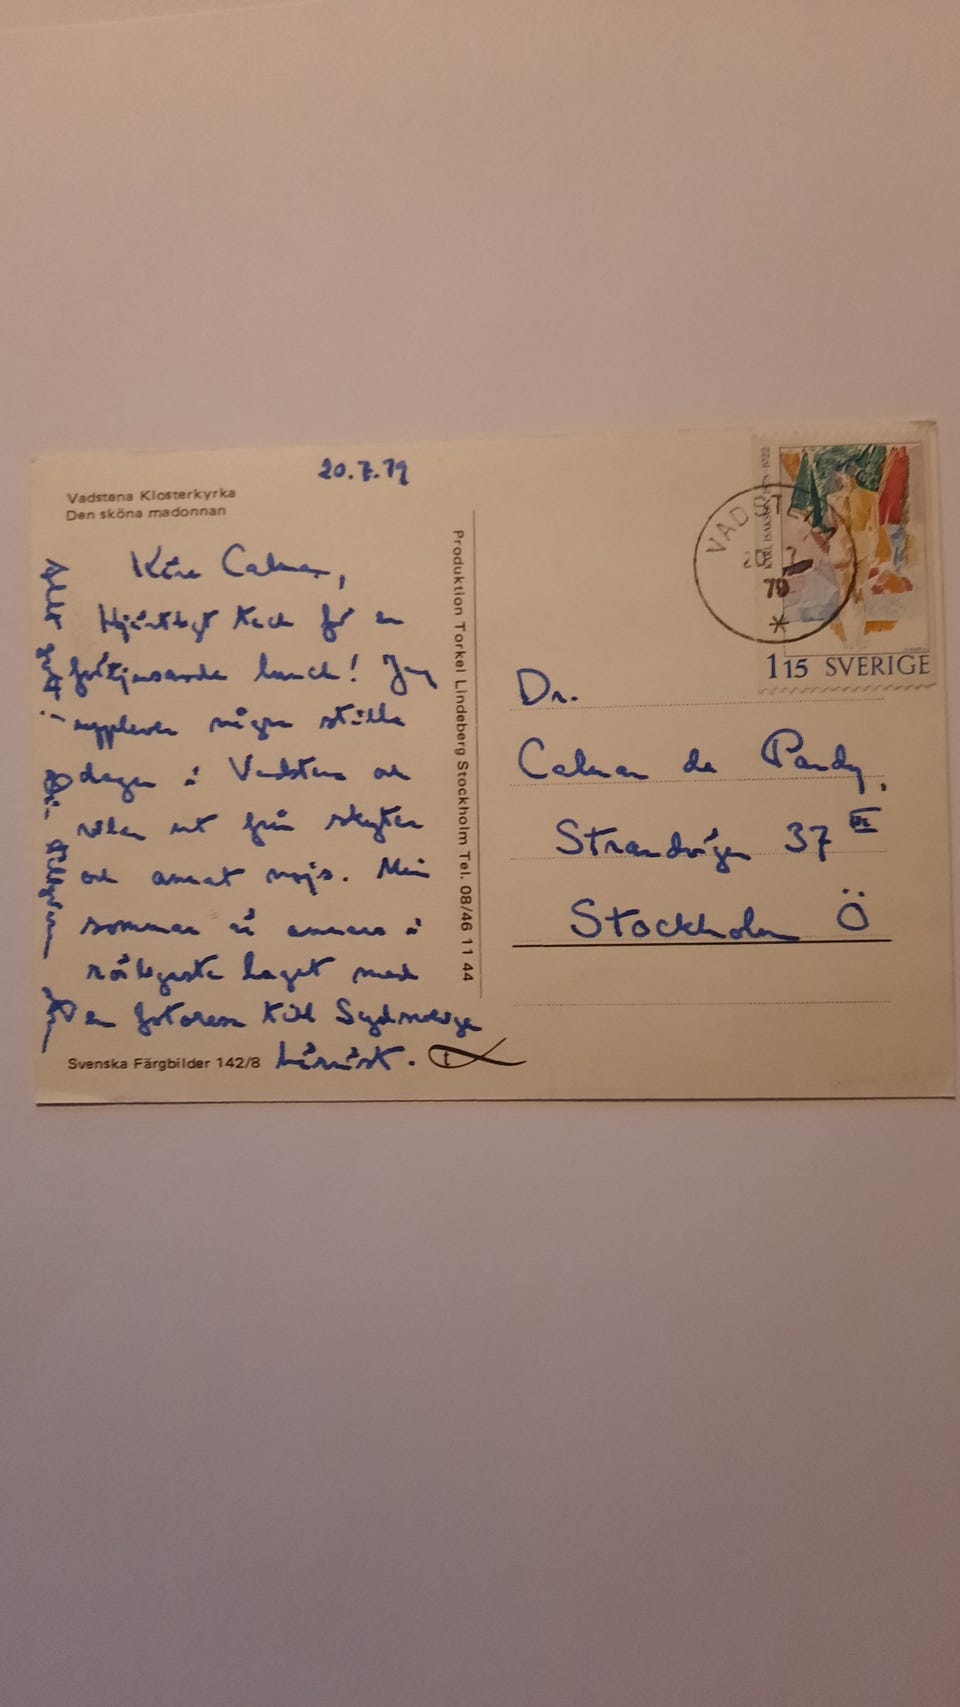 20.7.79
Vadstena Klosterkyrka
Den sköna madonnan
Käre Calman,
Hjärtligt tack för en
förtjusande lunch! Jag
upplever några stilla
dagar i Vadstena och
vilar ut från
och annat nojs. Min
sommar är annars i
rörligaste laget med
en fotoresa till Sydsverige
härnäst.
Svenska Färgbilder 142/8
Allt gott
Produktion Torkel Lindeberg Stockholm Tel. 08/46 11 44
VADSTENA
20 7
79
KARL ISAKSON 1878-1922
1 15 SVERIGE
Dr.
Calman de Pandy,
Strandvägen 37
Stockholm Ö